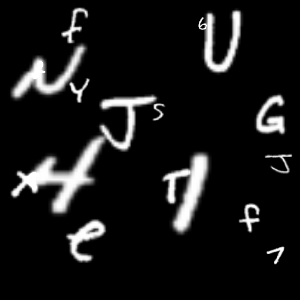 f 6 U
N Y
J S G
J
x H T 1
f
e 7